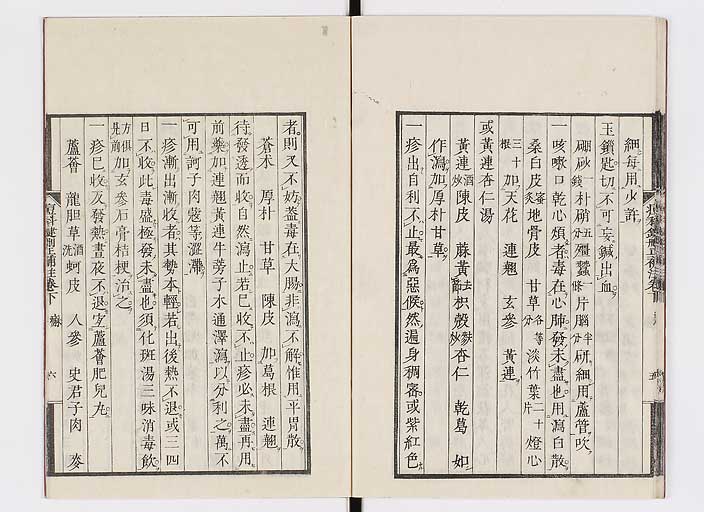 細每用火許
玉鎖匙切不可妄鍼出血
硼砂一錢朴硝五分殭蠶一條片腦半分研細用蘆管吹
一咳嗽口乾心煩者毒在心肺發未盡也用瀉白散
桑白皮蜜炙地骨皮 甘草各等分淡竹葉二十片燈心
三十根加天花 連翹 玄參 黃連
或黃連杏仁湯
黃連酒炒陳皮 麻黃去節枳殼麩炒杏仁 乾葛 如
作瀉加厚朴甘草
一疹出自利不止最爲惡候然遍身稠密或紫紅色
者則又不妨蓋毒在大腸非瀉不解惟用平胃散
蒼朮 厚朴 甘草 陳皮 加葛根 連翹
待發透而收自然瀉止若已收不止疹必未盡再用
前藥加連翹黃連牛蒡子木通澤瀉以分利之萬不
可用訶子肉蔻等澀滯
一疹漸出漸收者其勢本輕若出後熱不退或三四
日不收此毒盛極發未盡也須化斑湯三味消毒飲
方俱見前加玄參石膏桔梗治之
一疹已收及發熱晝夜不退宜蘆薈肥兒丸
蘆薈 龍胆草酒洗蚵皮 人參 史君子肉 麥
卷下 痲 六